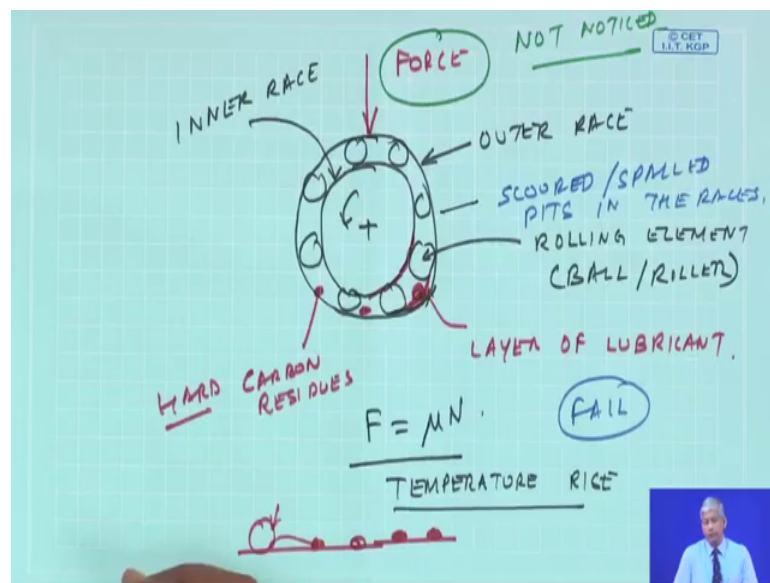 NOT NOTICED
© CET
I.I.T. KGP
FORCE
INNER RACE
OUTER RACE
SCOURED/SPALLED
PITS IN THE RACES.
ROLLING ELEMENT
(BALL/RILLER)
LAYER OF LUBRICANT.
HARD CARBON
RESIDUES
F = μN.
FAIL
TEMPERATURE RISE